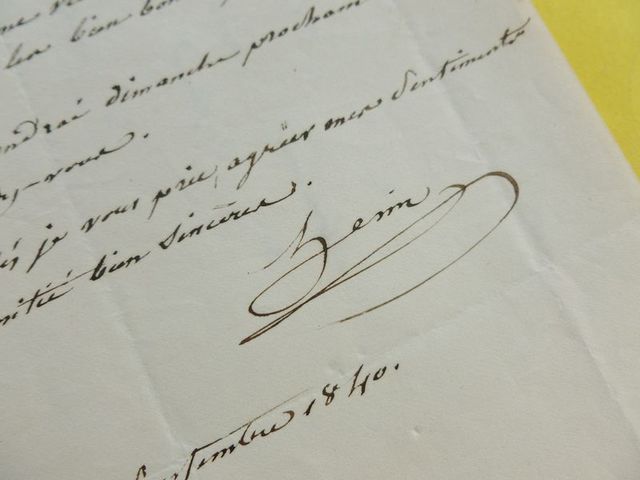 bon bon
ndrai dimanche prochain
ez-vous.
je vous prie, agréer mes sentiments
mitié bien sincères.
septembre 1840.